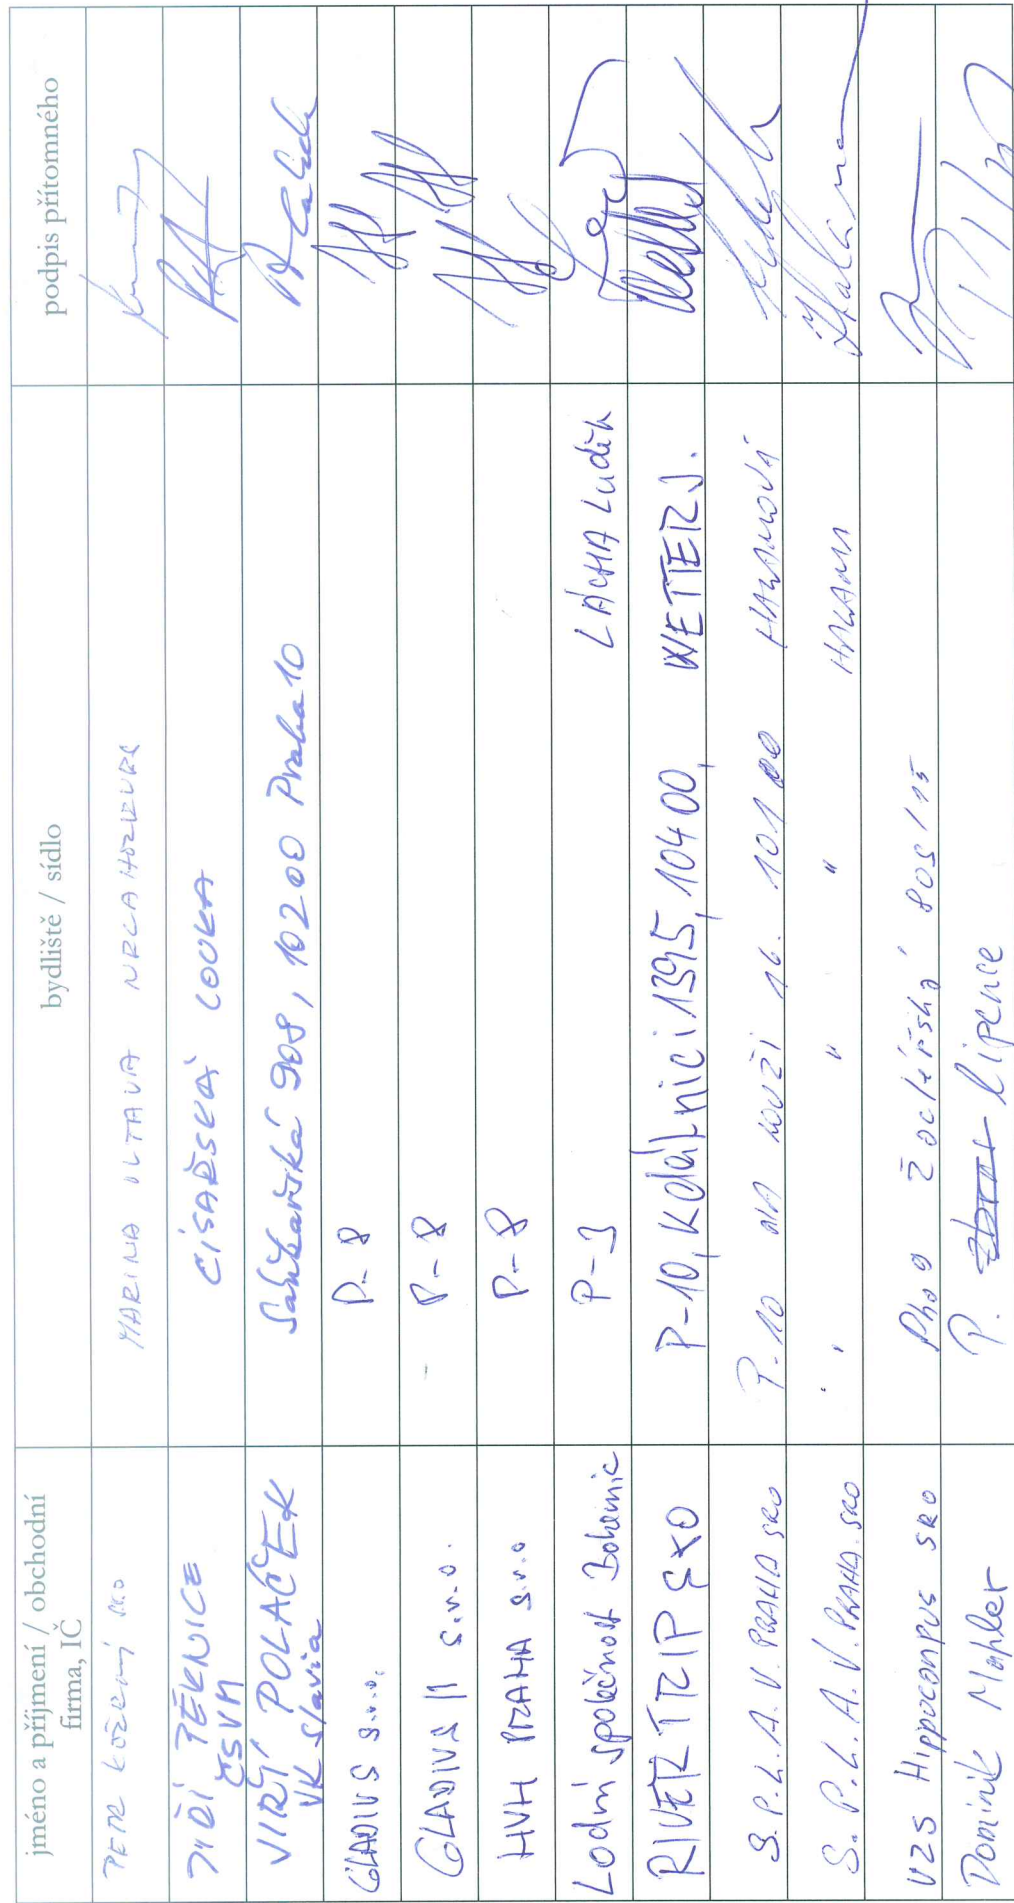 jméno a příjmení / obchodní firma, IČ	bydliště / sídlo	podpis přítomného
PETR KOŽENÝ s.r.o	MARINA VLTAVA
JIŘÍ PĚKNICE ČSVM	CÍSAŘSKÁ LOUKA
JIŘÍ POLÁČEK VK Slavia	908, 10200 Praha 10
GLADIUS s.r.o.	P-8
GLADIUS II s.r.o.	P-8
HVH PRAHA s.r.o	P-8
Lodní společnost Bohemia	P-3	LÁCHA Luděk
RIVER TRIP SRO	P-10, K dálnici 1395, 10400, WETTER J.
S.P.L.A.V. PRAHA SRO	P.10 NA 16. 10100
S.P.L.A.V. PRAHA SRO	" " "
VZS Hippocampus SRO	Pha 9 805/15
Dominik Mahler	P. Lipence